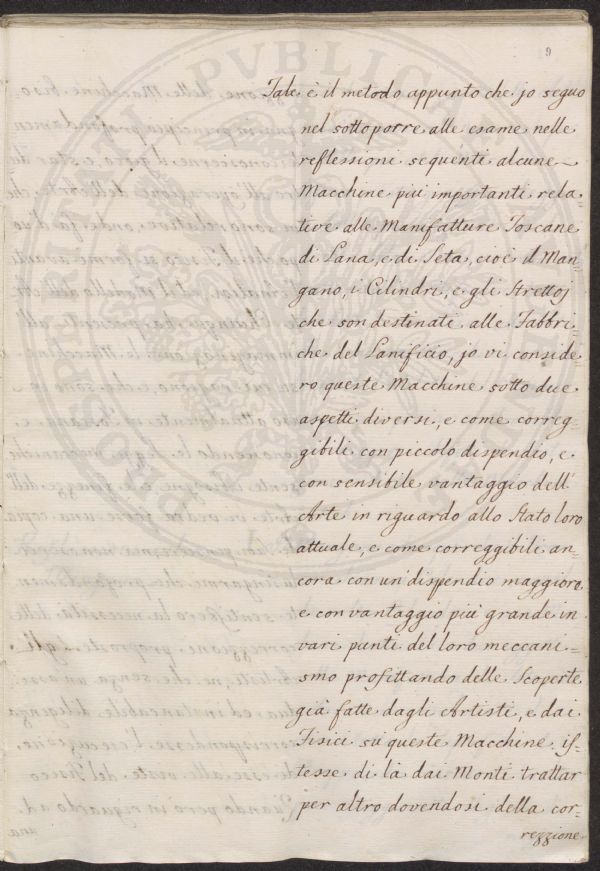 9
Tale è il metodo appunto che jo seguo
nel sottoporre alle esame nelle
reflessioni sequenti alcune
Macchine più importanti rela=
tive alle Manifatture Toscane
di Lana, e di Seta, cioè il Man=
gano, i Cilindri, e gli Strettoj
che son destinati alle Fabbri=
che del Lanificio, jo vi conside=
ro queste Macchine sotto due
aspetti diversi, e come correg=
gibili con piccolo dispendio, e
con sensibile vantaggio dell'
Arte in riguardo allo Stato loro
attuale, e come correggibili an=
cora con un' dispendio maggiore,
e con vantaggio più grande in
vari punti del loro meccani=
smo profittando delle Scoperte
già fatte dagli Artisti, e dai
Fisici sù queste Macchine is=
tesse di là dai Monti trattar
per altro dovendosi della cor=
rezzione